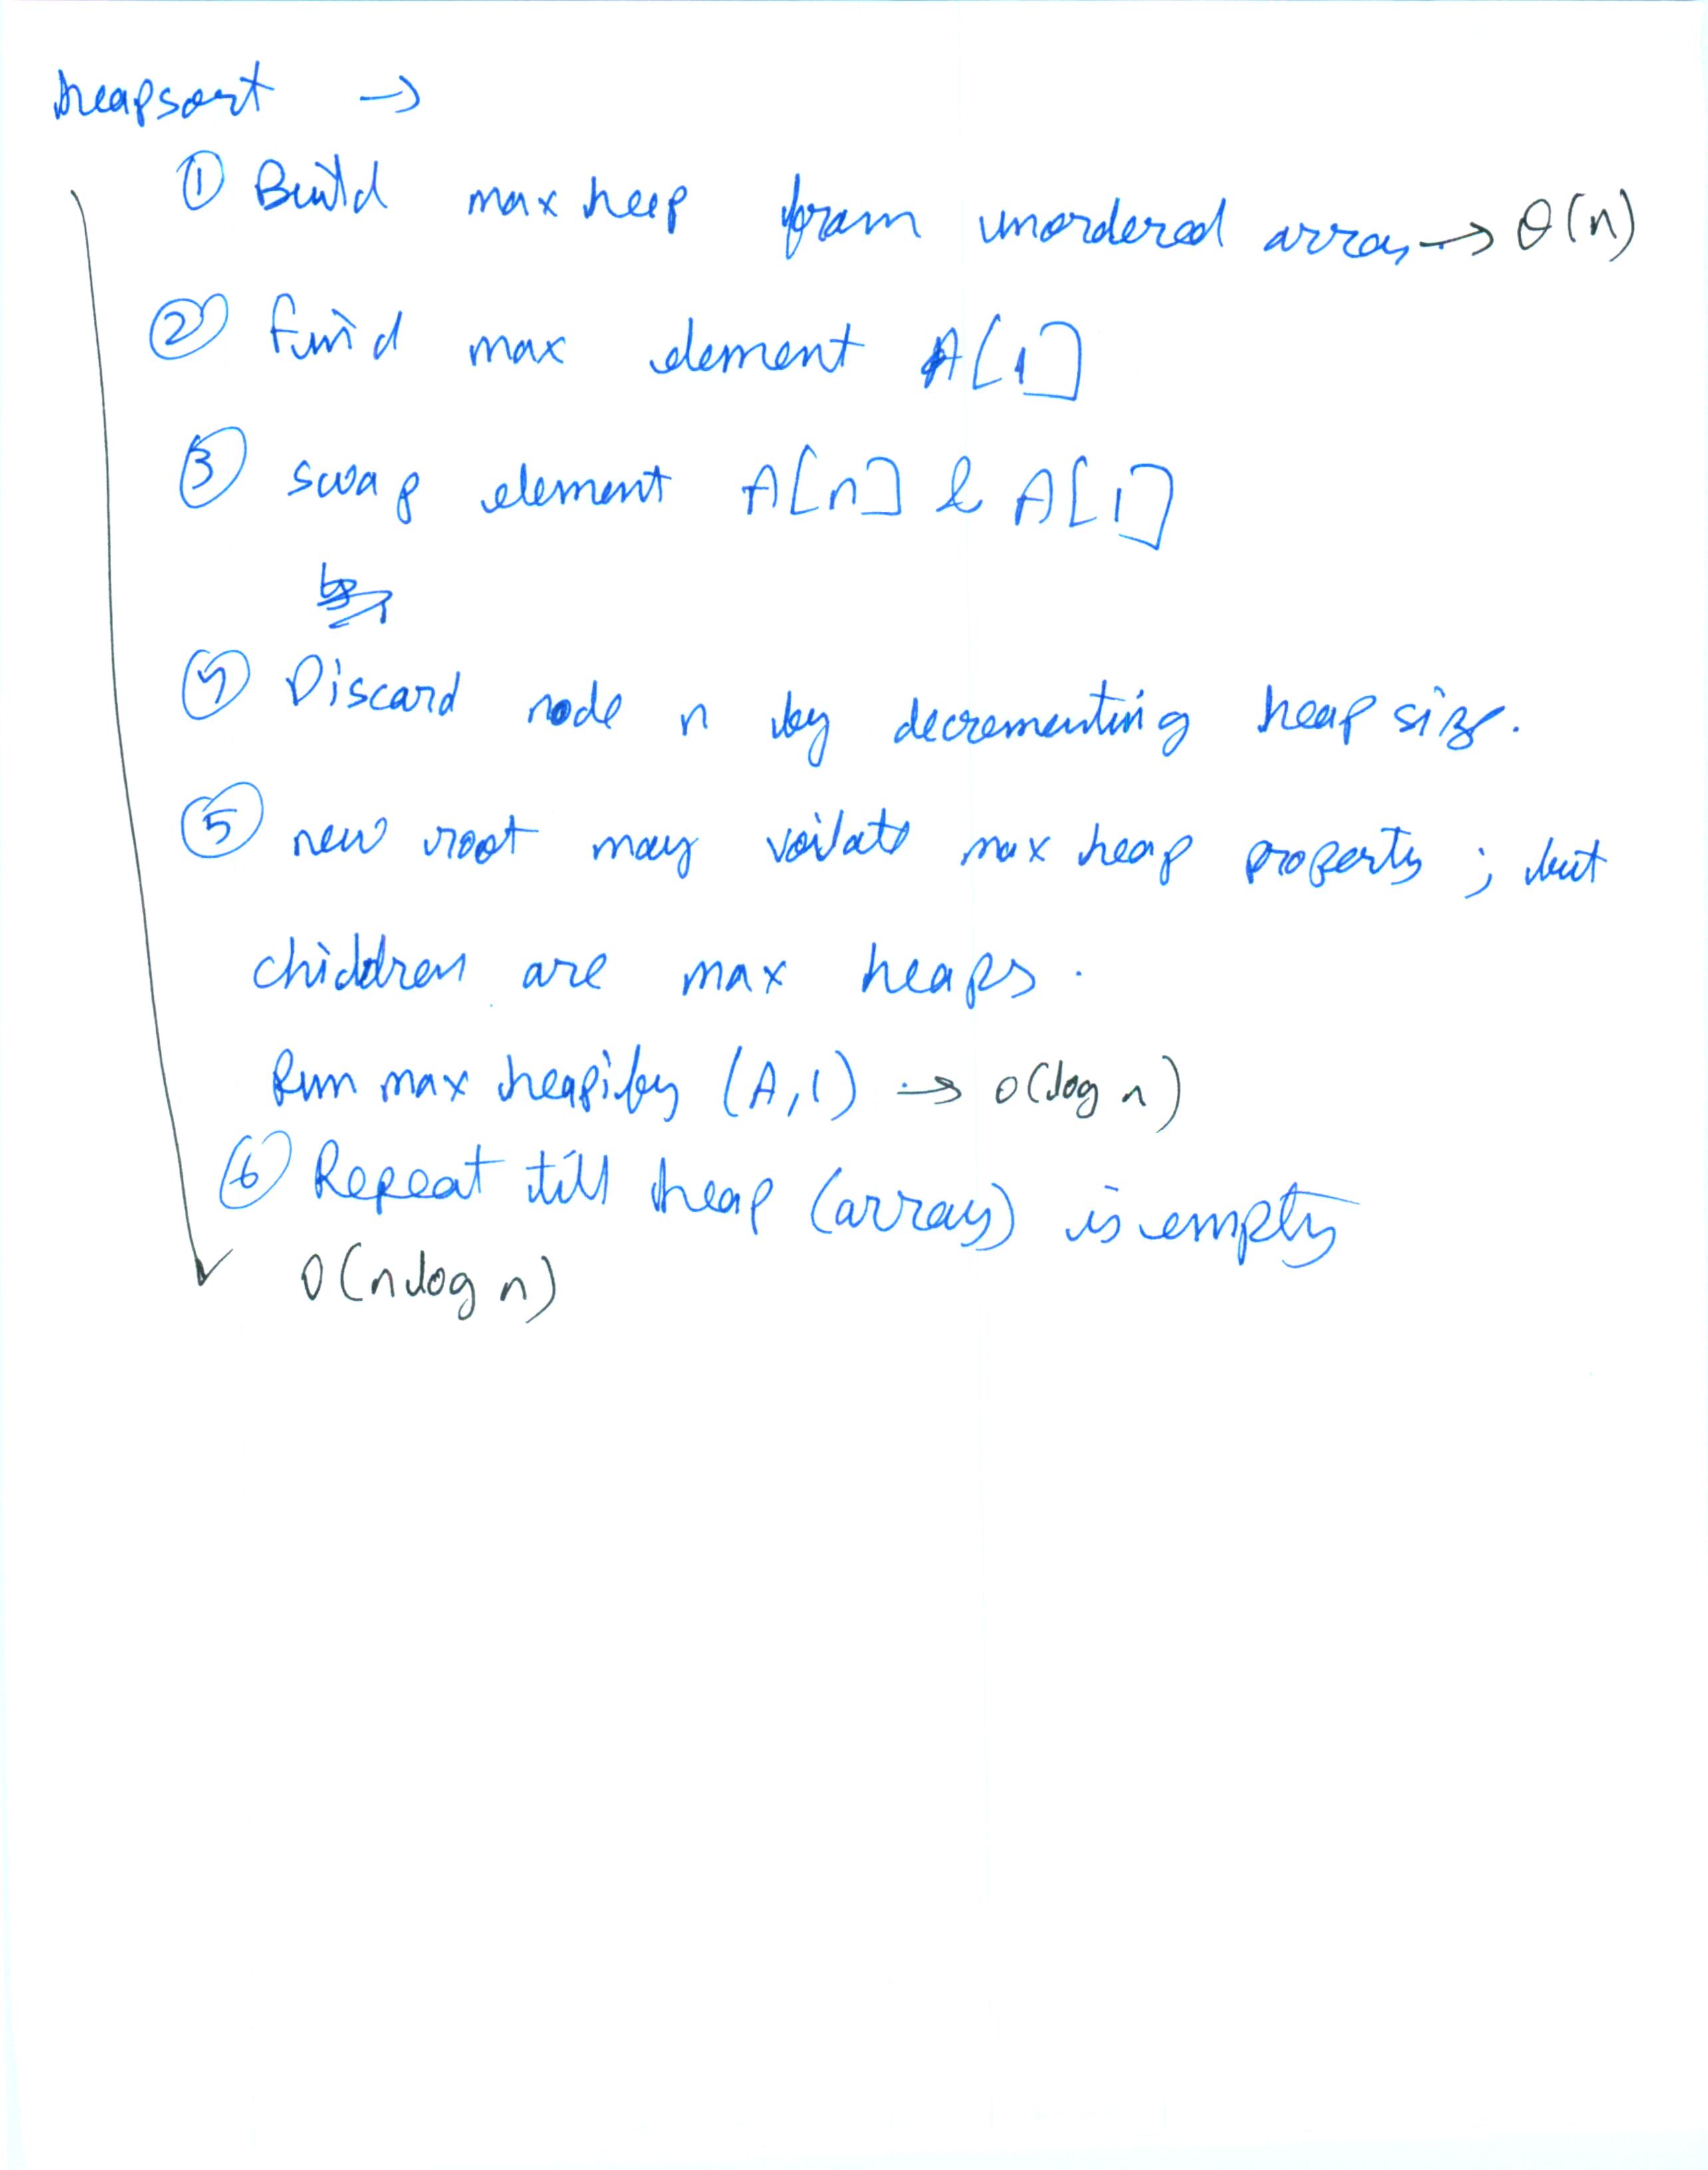 heapsort →
① Build max heap from unordered array → θ(n)
② find max element A[1]
③ swap element A[n] & A[1]
④ Discard node n by decrementing heap size.
⑤ new root may voilate max heap property ; but
children are max heaps.
Run max heapify (A,1) → O(log n)
⑥ Repeat till heap (array) is empty
O(n log n)